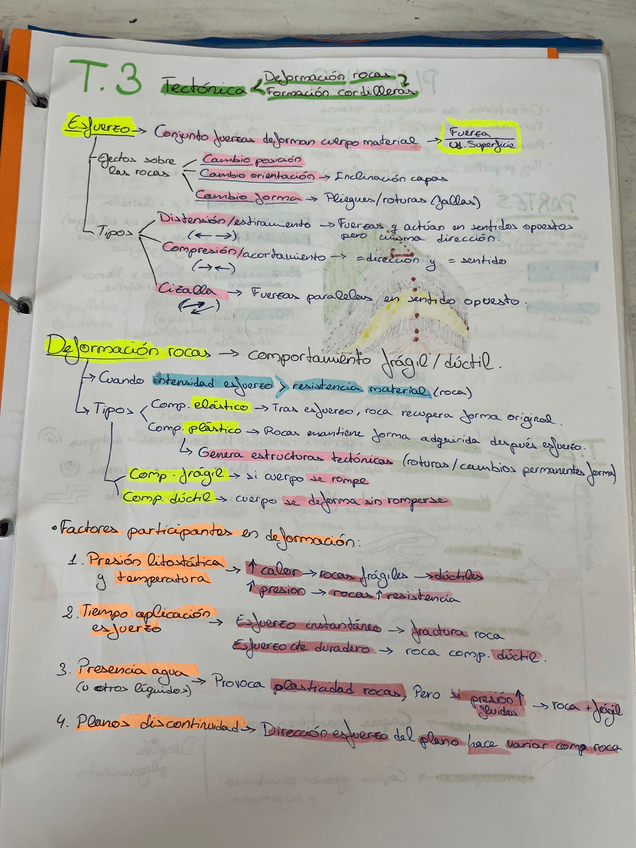 T.3 Tectónica < Deformación rocas
Formación cordilleras
Esfuerzo → Conjunto fuerzas deforman cuerpo material → Fuerza
Ud. Superficie
Efectos sobre las rocas
Cambio posición
Cambio orientación → Inclinación capas
Cambio forma → Pliegues/roturas (fallas)
Tipos
Distensión/estiramiento → Fuerzas q actúan en sentidos opuestos
(← →) pero misma dirección.
Compresión/acortamiento → = dirección y = sentido
(→ ←)
Cizalla → Fuerzas paralelas en sentido opuesto.
Deformación rocas → comportamiento frágil/dúctil.
→ Cuando intensidad esfuerzo > resistencia material (roca)
→ Tipos
Comp. elástico → Tras esfuerzo, roca recupera forma original.
Comp. plástico → Rocas mantiene forma adquirida después esfuerzo.
↳ Genera estructuras tectónicas (roturas/cambios permanentes forma)
Comp. frágil → si cuerpo se rompe
Comp. dúctil → cuerpo se deforma sin romperse
• Factores participantes en deformación:
1. Presión litostática y temperatura → ↑ calor → rocas frágiles → dúctiles
↑ presion → rocas ↑ resistencia
2. Tiempo aplicación esfuerzo → Esfuerzo instantáneo → fractura roca
Esfuerzo de duradero → roca comp. dúctil.
3. Presencia agua (u otros líquidos) → Provoca plasticidad rocas, Pero si presión ↑ fluidos → roca + frágil
4. Planos discontinuidad → Dirección esfuerzo del plano hace variar comp roca